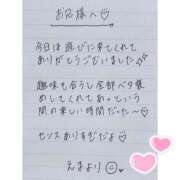 お兄様へ♡
今日は遊びに来てくれて
ありがとうございました
趣味も合うし全部ベタ褒
めしてくれてあっという
間の楽しい時間だった〜♡
センスありすぎだよ♡
えまより